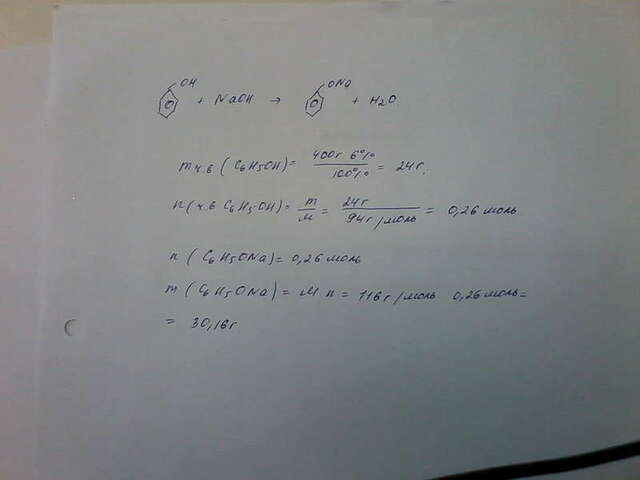 OH ONa
+ NaOH → + H2O.
m ч.в (C6H5OH) = 400г 6% / 100% = 24г.
n (ч.в C6H5OH) = m / M = 24г / 94г/моль = 0,26 моль
n (C6H5ONa) = 0,26 моль
m (C6H5ONa) = M · n = 116г/моль · 0,26 моль=
= 30,16г